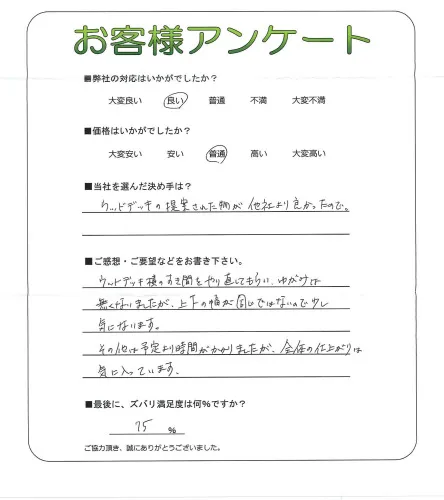 お客様アンケート
■弊社の対応はいかがでしたか？
大変良い 良い 普通 不満 大変不満
■価格はいかがでしたか？
大変安い 安い 普通 高い 大変高い
■当社を選んだ決め手は？
ウッドデッキの提案された物が他社より良かったので。
■ご感想・ご要望などをお書き下さい。
ウッドデッキ横のすき間をやり直してもらい、ゆがみは
無くなりましたが、上下の幅が同じではないので少し
気になります。
その他は予定より時間がかかりましたが、全体の仕上がりは
気に入っています。
■最後に、ズバリ満足度は何%ですか？
75 %
ご協力頂き、誠にありがとうございました。